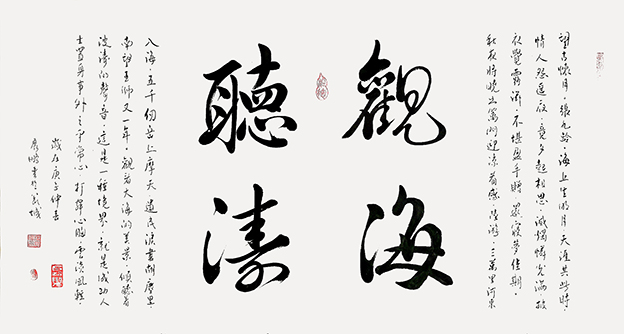 張九齡·海上生明月 天涯共此時·
情人怨遙夜·竟夕起相思·滅燭憐光滿·披
衣覺露滋·不堪盈手贈·還寢夢佳期·
秋夜將曉出籬門迎涼有感·陸游·三萬里河東
觀海
聽濤
入海·五千仞岳上摩天·遺民淚盡胡塵里·
南望王師又一年·觀看大海的美景·傾聽着
波濤的聲音·這是一種境界·就是成功人
士置身事外之平常心·心胸·雲淡風輕·
歲在庚子仲春
書於城